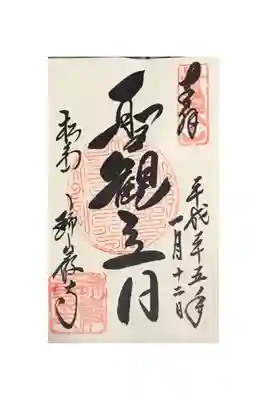 奉拝
平成廿五年
一月十二日
聖観音
松島
瑞巌寺